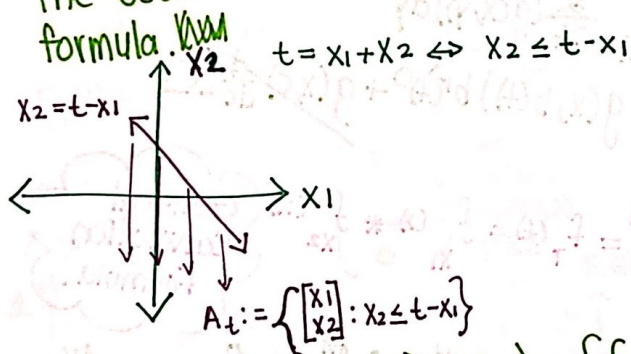 formula.
X2
t = X1 + X2 ⇔ X2 ≤ t - X1
X2 = t - X1
X1
At := {[X1 X2] : X2 ≤ t - X1}